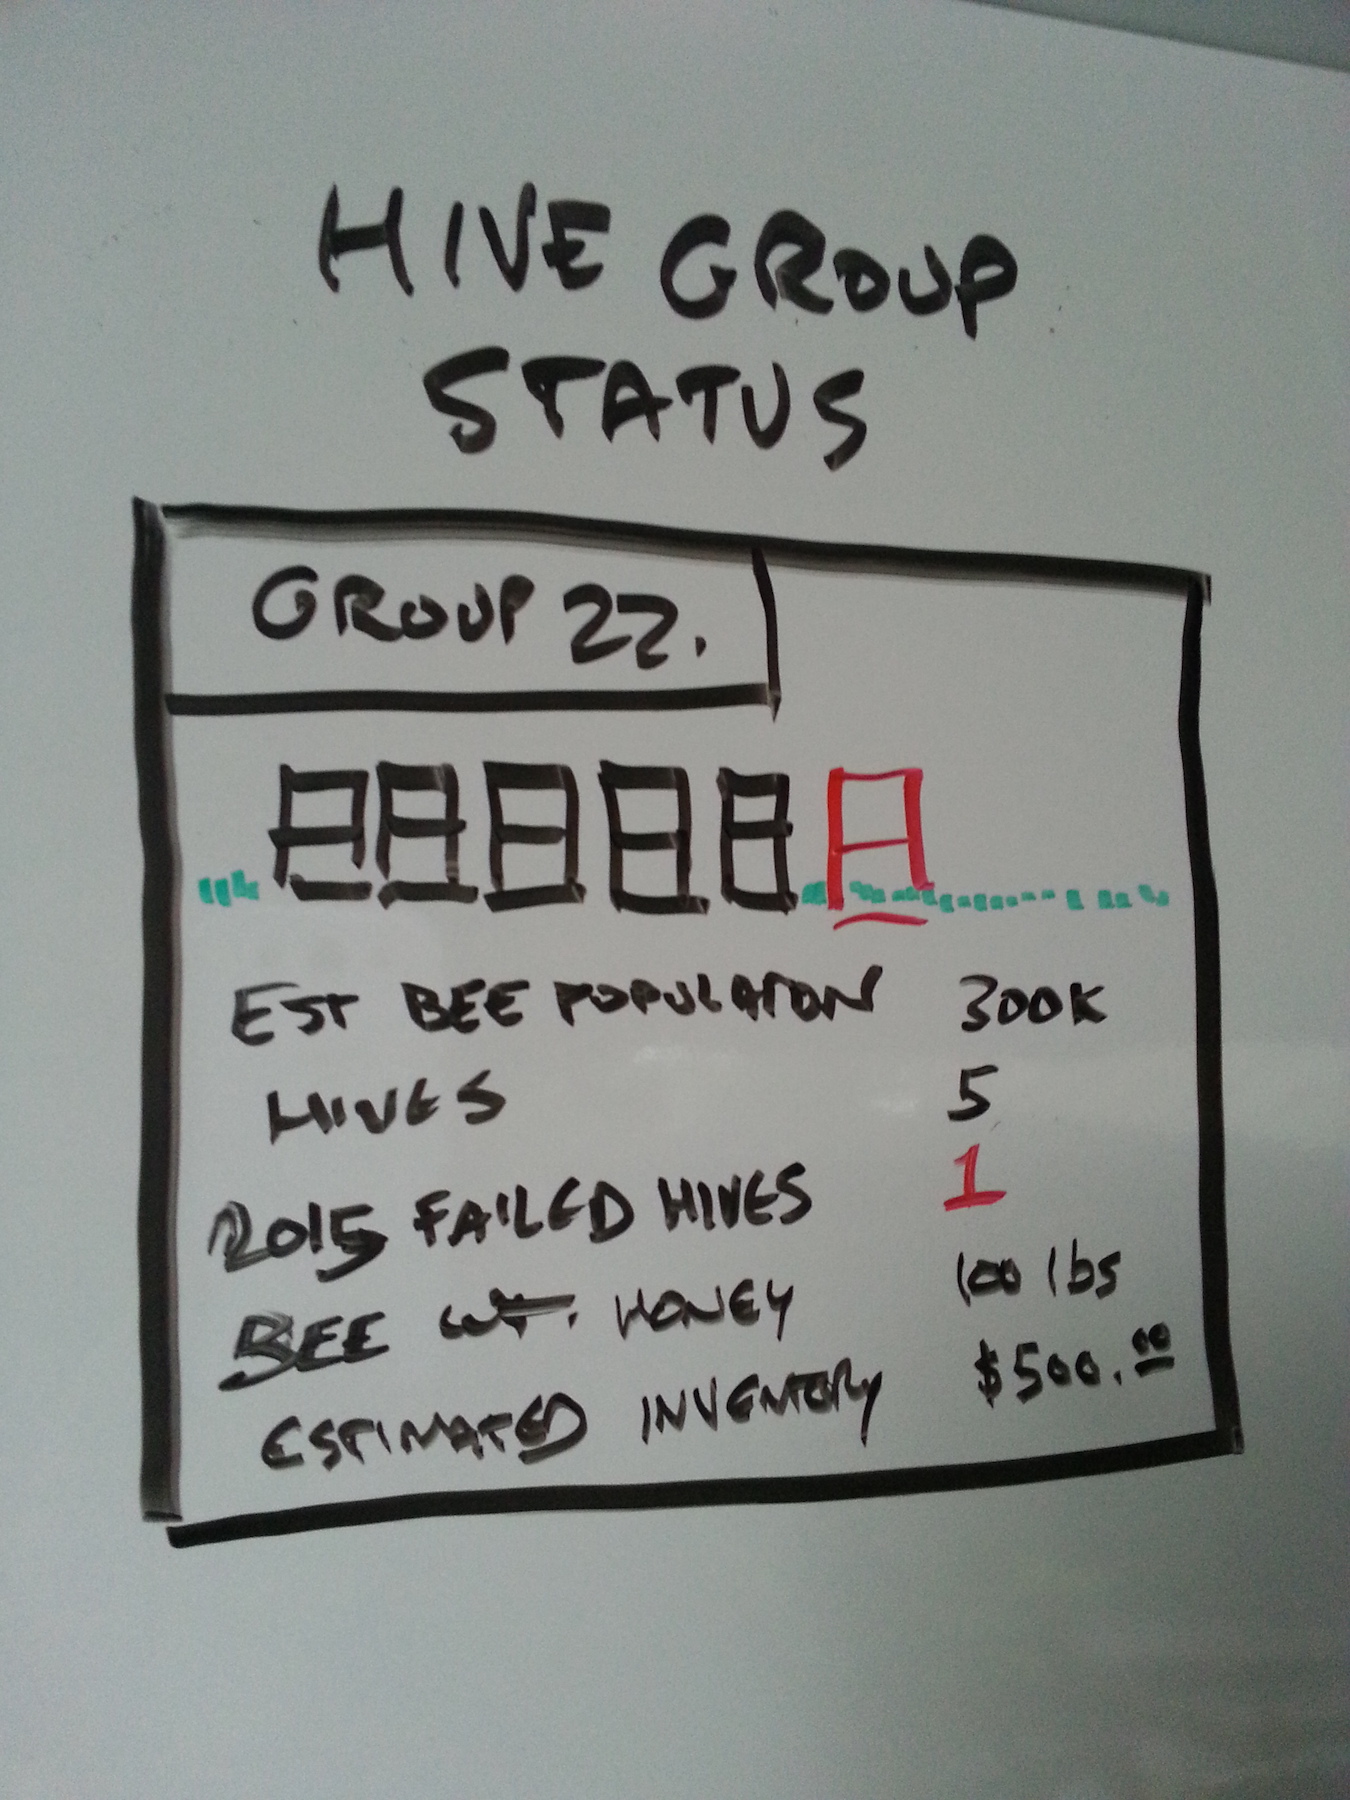 HIVE GROUP
STATUS
GROUP 22.
EST BEE POPULATION 300K
HIVES 5
2015 FAILED HIVES 1
BEE WT. HONEY 100 lbs
ESTIMATED INVENTORY $500.00